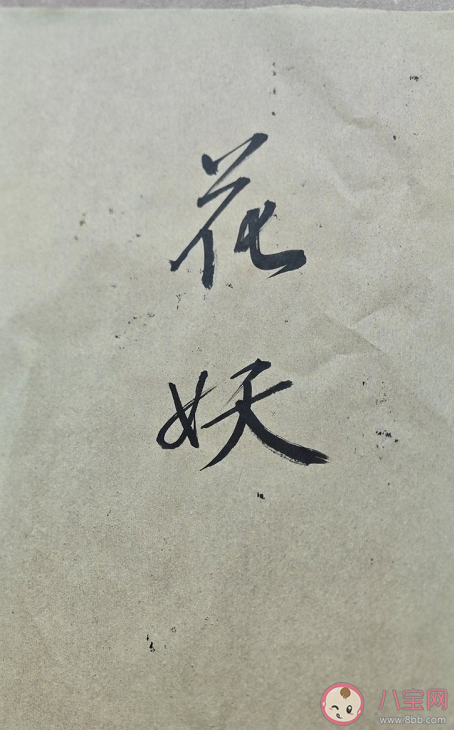 花
妖
八宝网
www.8bb.com